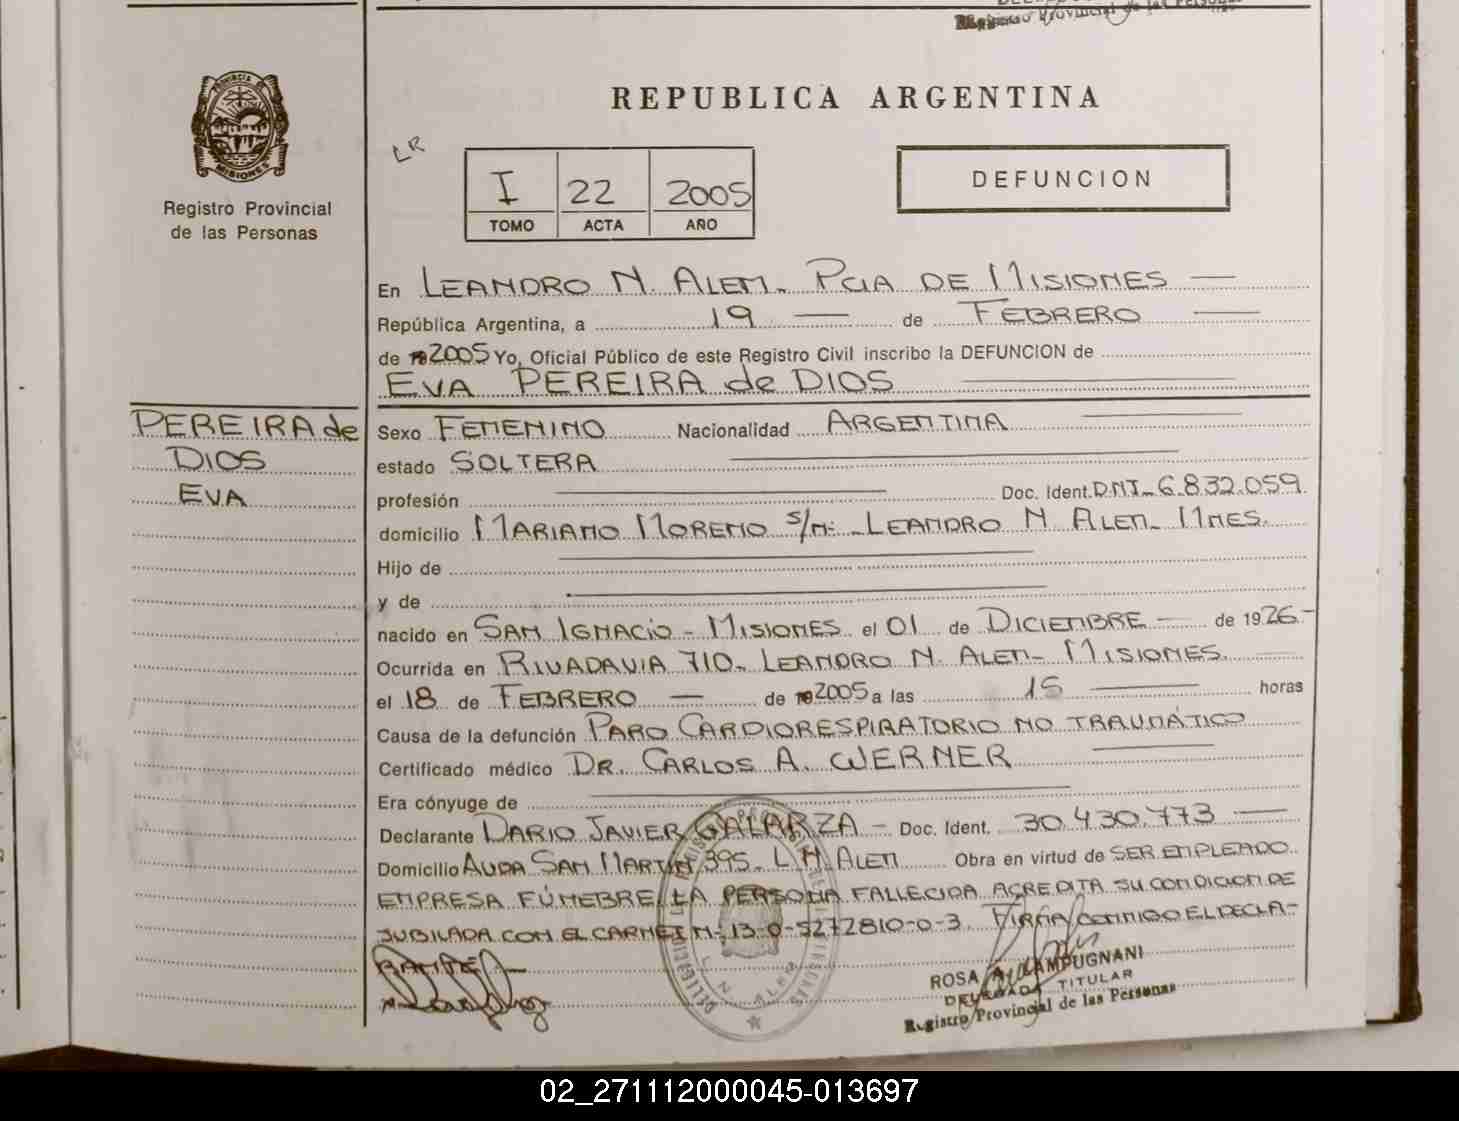 Registro Provincial de las Personas
PROVINCIA DE
MISIONES
Registro Provincial
de las Personas
REPUBLICA ARGENTINA
LR
I 22 2005
TOMO ACTA AÑO
DEFUNCION
En LEANDRO N. ALEM - PCIA DE MISIONES —
República Argentina, a 19 — de FEBRERO —
de 2005 Yo, Oficial Público de este Registro Civil inscribo la DEFUNCION de
EVA PEREIRA de DIOS
PEREIRA de
DIOS
EVA
Sexo FEMENINO Nacionalidad ARGENTINA
estado SOLTERA
profesión — Doc. Ident. DNI- 6.832.059
domicilio MARIANO MORENO S/N: - LEANDRO N ALEM - MNES.
Hijo de —
y de —
nacido en SAN IGNACIO - MISIONES el 01 de DICIEMBRE — de 1926 -
Ocurrida en RIVADAVIA 710 - LEANDRO N. ALEM - MISIONES —
el 18 de FEBRERO — de 2005 a las 15 — horas
Causa de la defunción PARO CARDIORESPIRATORIO NO TRAUMÁTICO
Certificado médico DR. CARLOS A. WERNER —
Era cónyuge de —
Declarante DARIO JAVIER GALARZA - Doc. Ident. 30.430.773 —
Domicilio AVDA SAN MARTIN 395 - L N. ALEM Obra en virtud de SER EMPLEADO
EMPRESA FÚNEBRE. LA PERSONA FALLECIDA ACREDITA SU CONDICION DE
JUBILADA CON EL CARNET N: 13-0-5272810-0-3. FIRMA CONMIGO EL DECLA-
RANTE —
ROSA A. CAMPUGNANI
DELEGADA TITULAR
Registro Provincial de las Personas
02_271112000045-013697